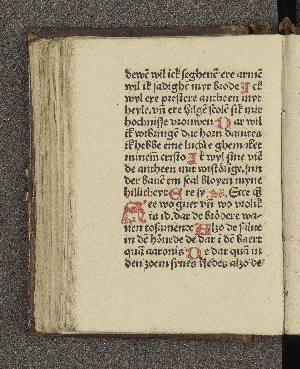 dewē wil ick seghenē ere armē
wil ik sadighē myt brode Ick
wyl ere prestere antheen myt
heyle. vn̄ ere hilgē scolē sik mit
hochnisse vrouwen Dar wil
ik vtbringē dat horn dauites
ik hebbe eine luchte ghemaket
minem cristo Ik wyl sine viē
de antheen mit
der bauē em scal bloyen myne
hillicheyt Ere sy Ecce q̄
See wo guet vn̄ wo vrolik
is id. dat de brödere wa-
nen tosamente Alzo de salue
in dē höuede de dar i dē baert
quā aaronis De dar quā in
den zoem synes kledes alzo de